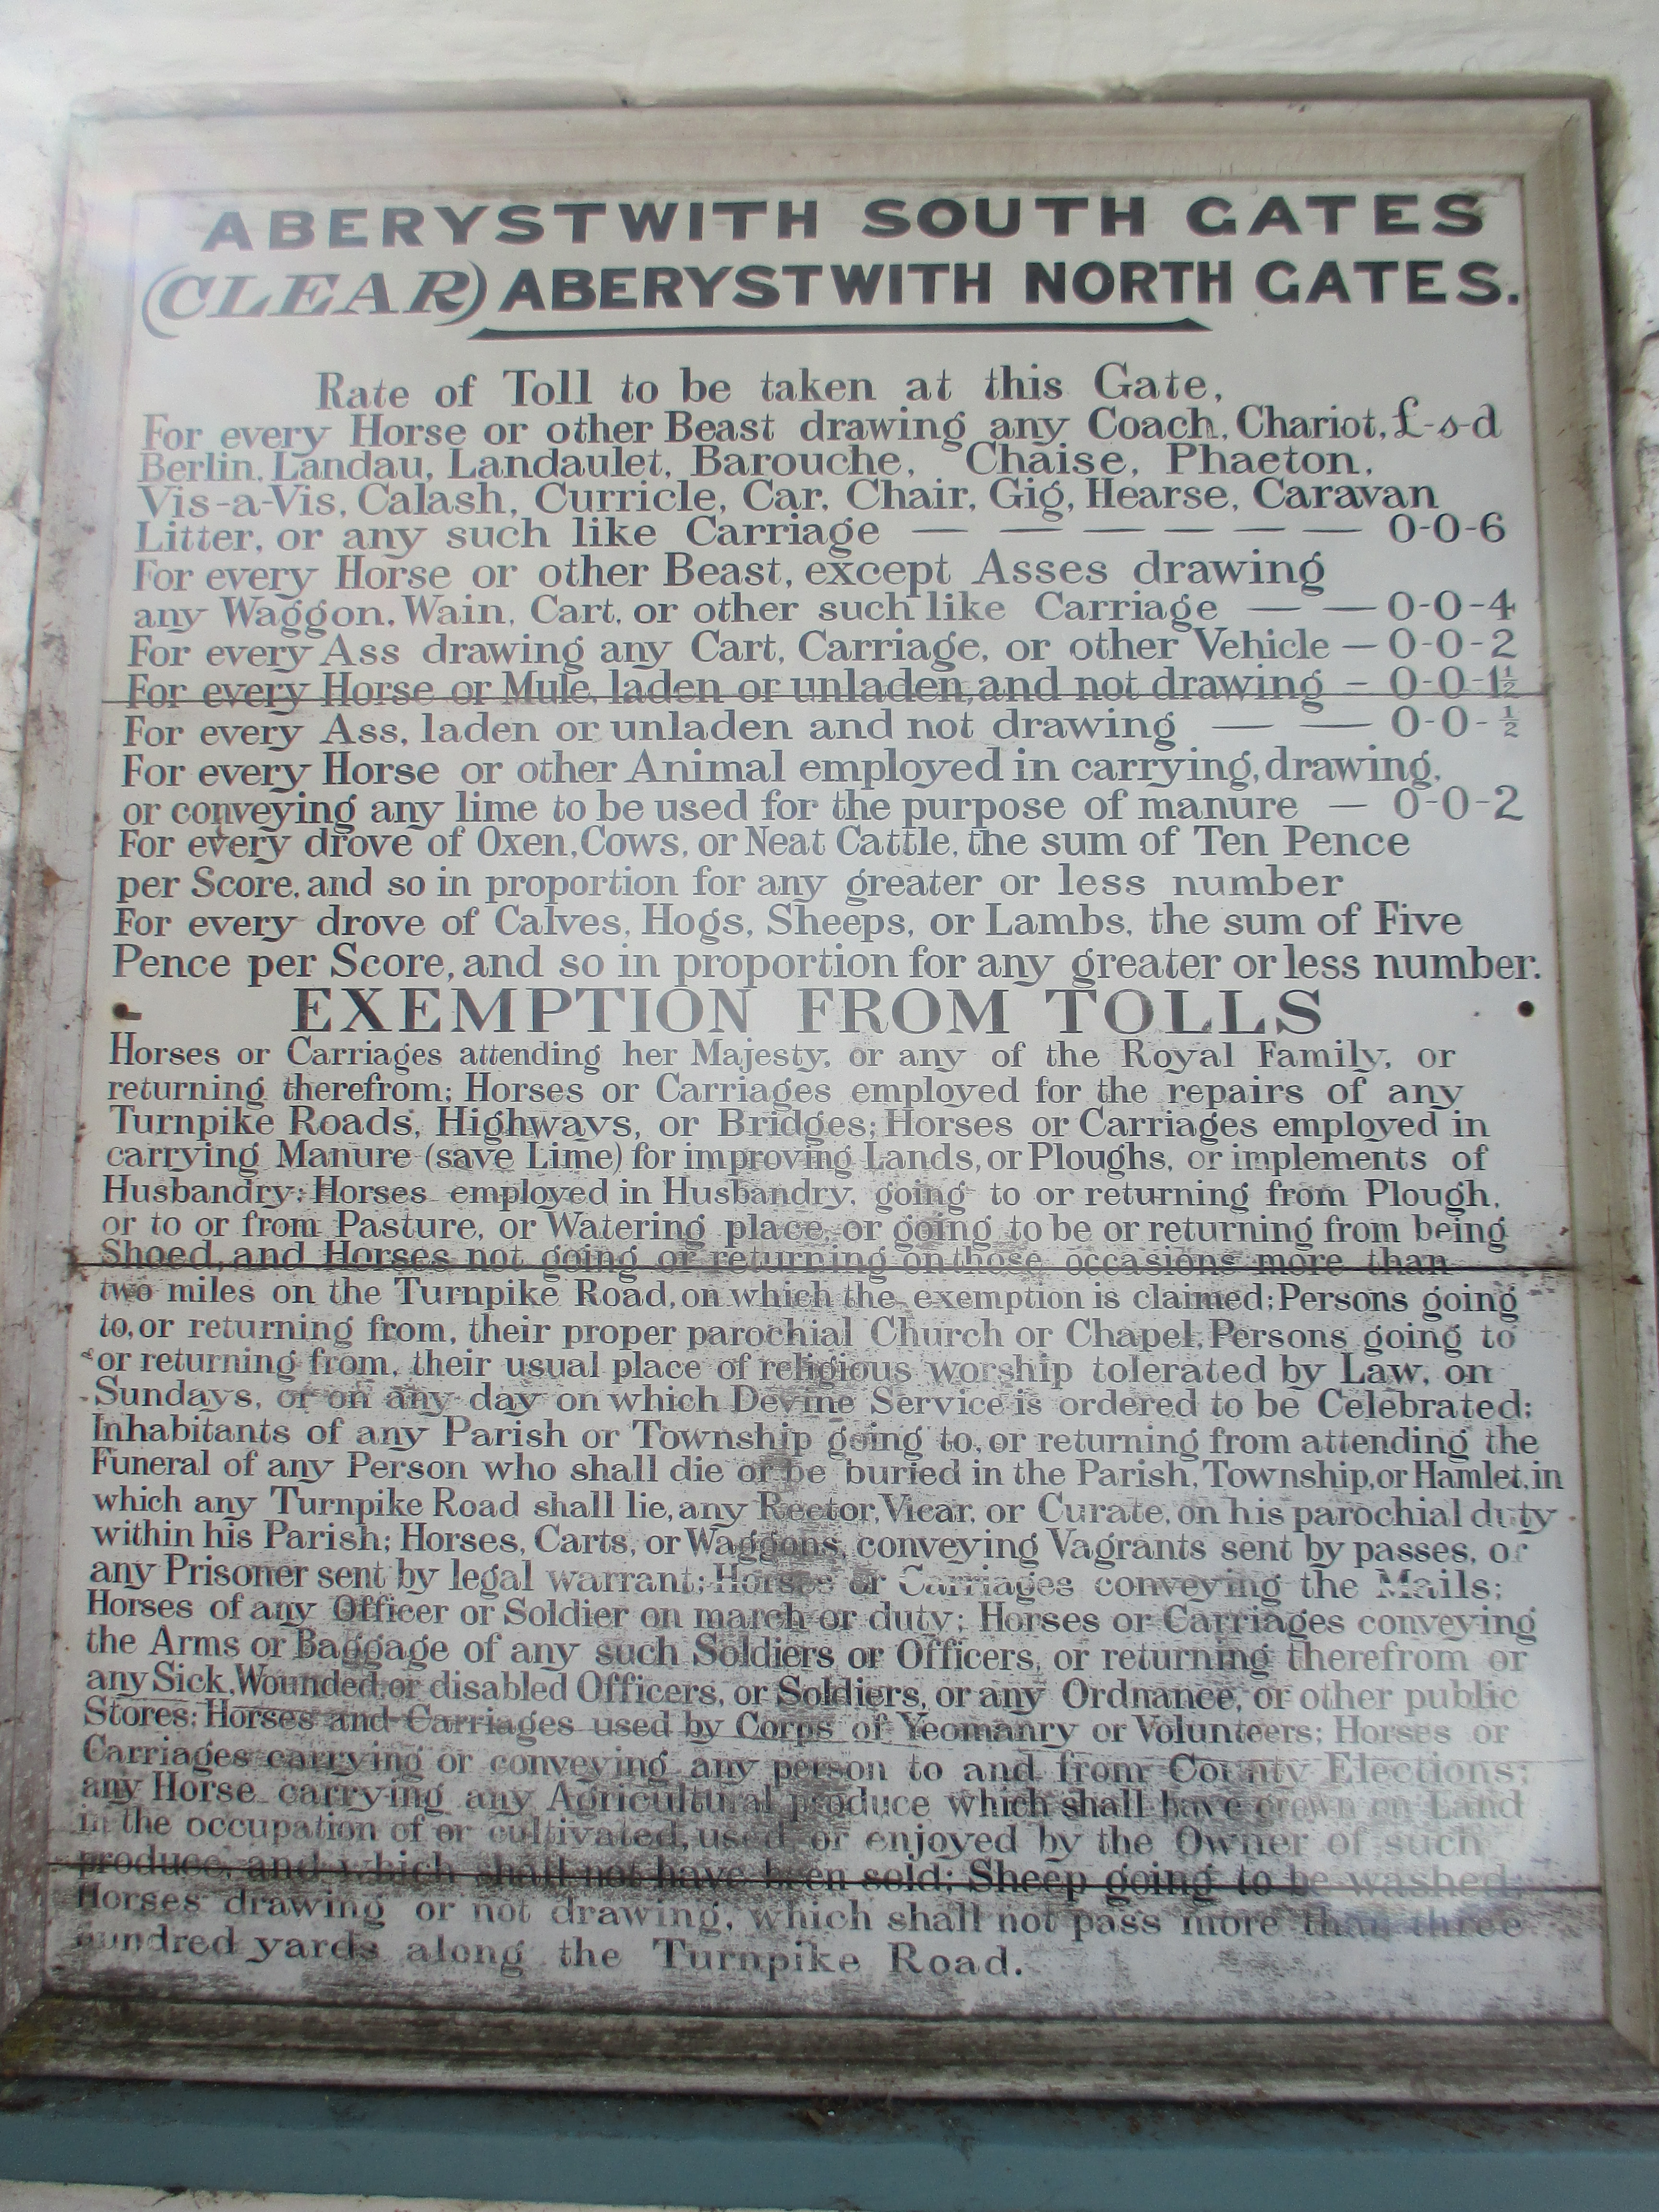 ABERYSTWITH SOUTH GATES
(CLEAR) ABERYSTWITH NORTH GATES.
Rate of Toll to be taken at this Gate,
For every Horse or other Beast drawing any Coach, Chariot, £-s-d
Berlin, Landau, Landaulet, Barouche, Chaise, Phaeton,
Vis-a-Vis, Calash, Curricle, Car, Chair, Gig, Hearse, Caravan
Litter, or any such like Carriage — — — — — — 0-0-6
For every Horse or other Beast, except Asses drawing
any Waggon, Wain, Cart, or other such like Carriage — — 0-0-4
For every Ass drawing any Cart, Carriage, or other Vehicle — 0-0-2
For every Horse or Mule, laden or unladen, and not drawing – 0-0-1½
For every Ass, laden or unladen and not drawing — — 0-0-½
For every Horse or other Animal employed in carrying, drawing,
or conveying any lime to be used for the purpose of manure — 0-0-2
For every drove of Oxen, Cows, or Neat Cattle, the sum of Ten Pence
per Score, and so in proportion for any greater or less number
For every drove of Calves, Hogs, Sheeps, or Lambs, the sum of Five
Pence per Score, and so in proportion for any greater or less number.
EXEMPTION FROM TOLLS
Horses or Carriages attending her Majesty, or any of the Royal Family, or
returning therefrom; Horses or Carriages employed for the repairs of any
Turnpike Roads, Highways, or Bridges; Horses or Carriages employed in
carrying Manure (save Lime) for improving Lands, or Ploughs, or implements of
Husbandry; Horses employed in Husbandry, going to or returning from Plough,
or to or from Pasture, or Watering place, or going to be or returning from being
Shoed, and Horses not going or returning on those occasions more than
two miles on the Turnpike Road, on which the exemption is claimed; Persons going
to, or returning from, their proper parochial Church or Chapel, Persons going to
or returning from, their usual place of religious worship tolerated by Law, on
Sundays, or on any day on which Devine Service is ordered to be Celebrated;
Inhabitants of any Parish or Township going to, or returning from attending the
Funeral of any Person who shall die or be buried in the Parish, Township, or Hamlet, in
which any Turnpike Road shall lie, any Rector, Vicar, or Curate, on his parochial duty
within his Parish; Horses, Carts, or Waggons, conveying Vagrants sent by passes, or
any Prisoner sent by legal warrant; Horses or Carriages conveying the Mails;
Horses of any Officer or Soldier on march or duty; Horses or Carriages conveying
the Arms or Baggage of any such Soldiers or Officers, or returning therefrom or
any Sick, Wounded, or disabled Officers, or Soldiers, or any Ordnance, or other public
Stores; Horses and Carriages used by Corps of Yeomanry or Volunteers; Horses or
Carriages carrying or conveying any person to and from County Elections;
any Horse carrying any Agricultural produce which shall have grown on Land
in the occupation of or cultivated, used, or enjoyed by the Owner of such
produce, and which shall not have been sold; Sheep going to be washed;
Horses drawing or not drawing, which shall not pass more than three
hundred yards along the Turnpike Road.